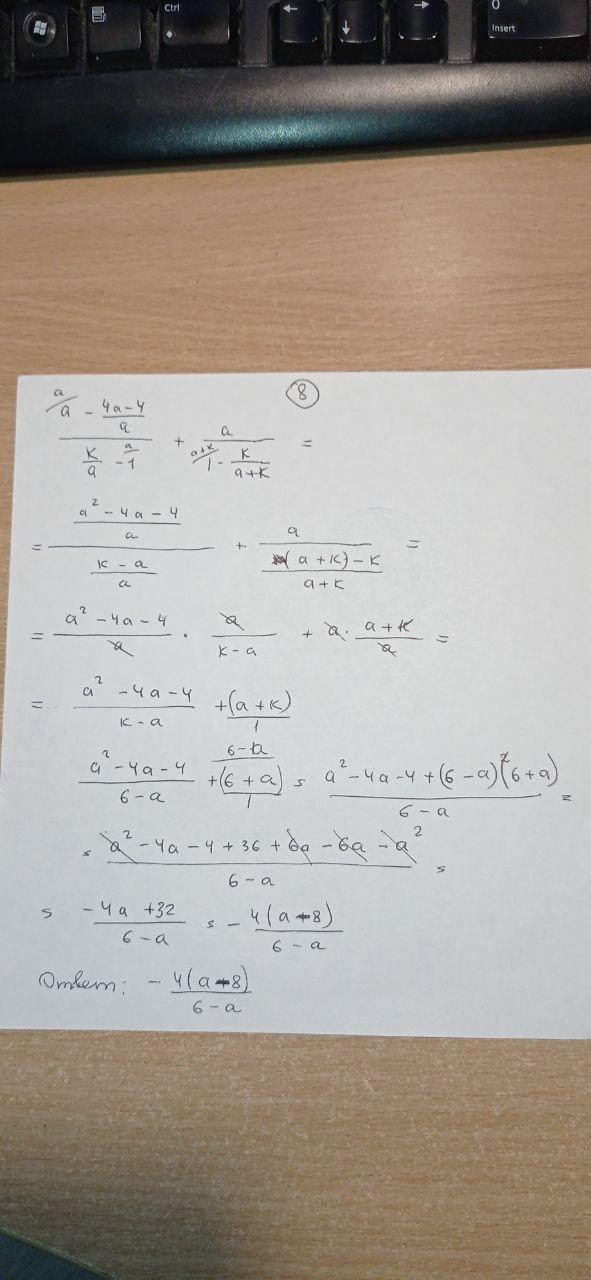 Ctrl ← ↓ → 0 Insert
8
a/ a - (4a-4)/a / (k/a - a/ 1) + a / (a+k/ 1 - k/(a+k)) =
= ((a² - 4a - 4)/a) / ((k - a)/a) + a / (((a + k) - k)/(a + k)) =
= (a² - 4a - 4)/a · a/(k - a) + a · (a + k)/a =
= (a² - 4a - 4)/(k - a) + (a + k)/1
(a² - 4a - 4)/(6 - a) + 6-a/ (6 + a)/1 = (a² - 4a - 4 + (6 - a)(6 + a))/(6 - a) =
= (a² - 4a - 4 + 36 + 6a - 6a - a²)/(6 - a) =
= (-4a + 32)/(6 - a) = - 4(a - 8)/(6 - a)
Ответ: - 4(a - 8)/(6 - a)